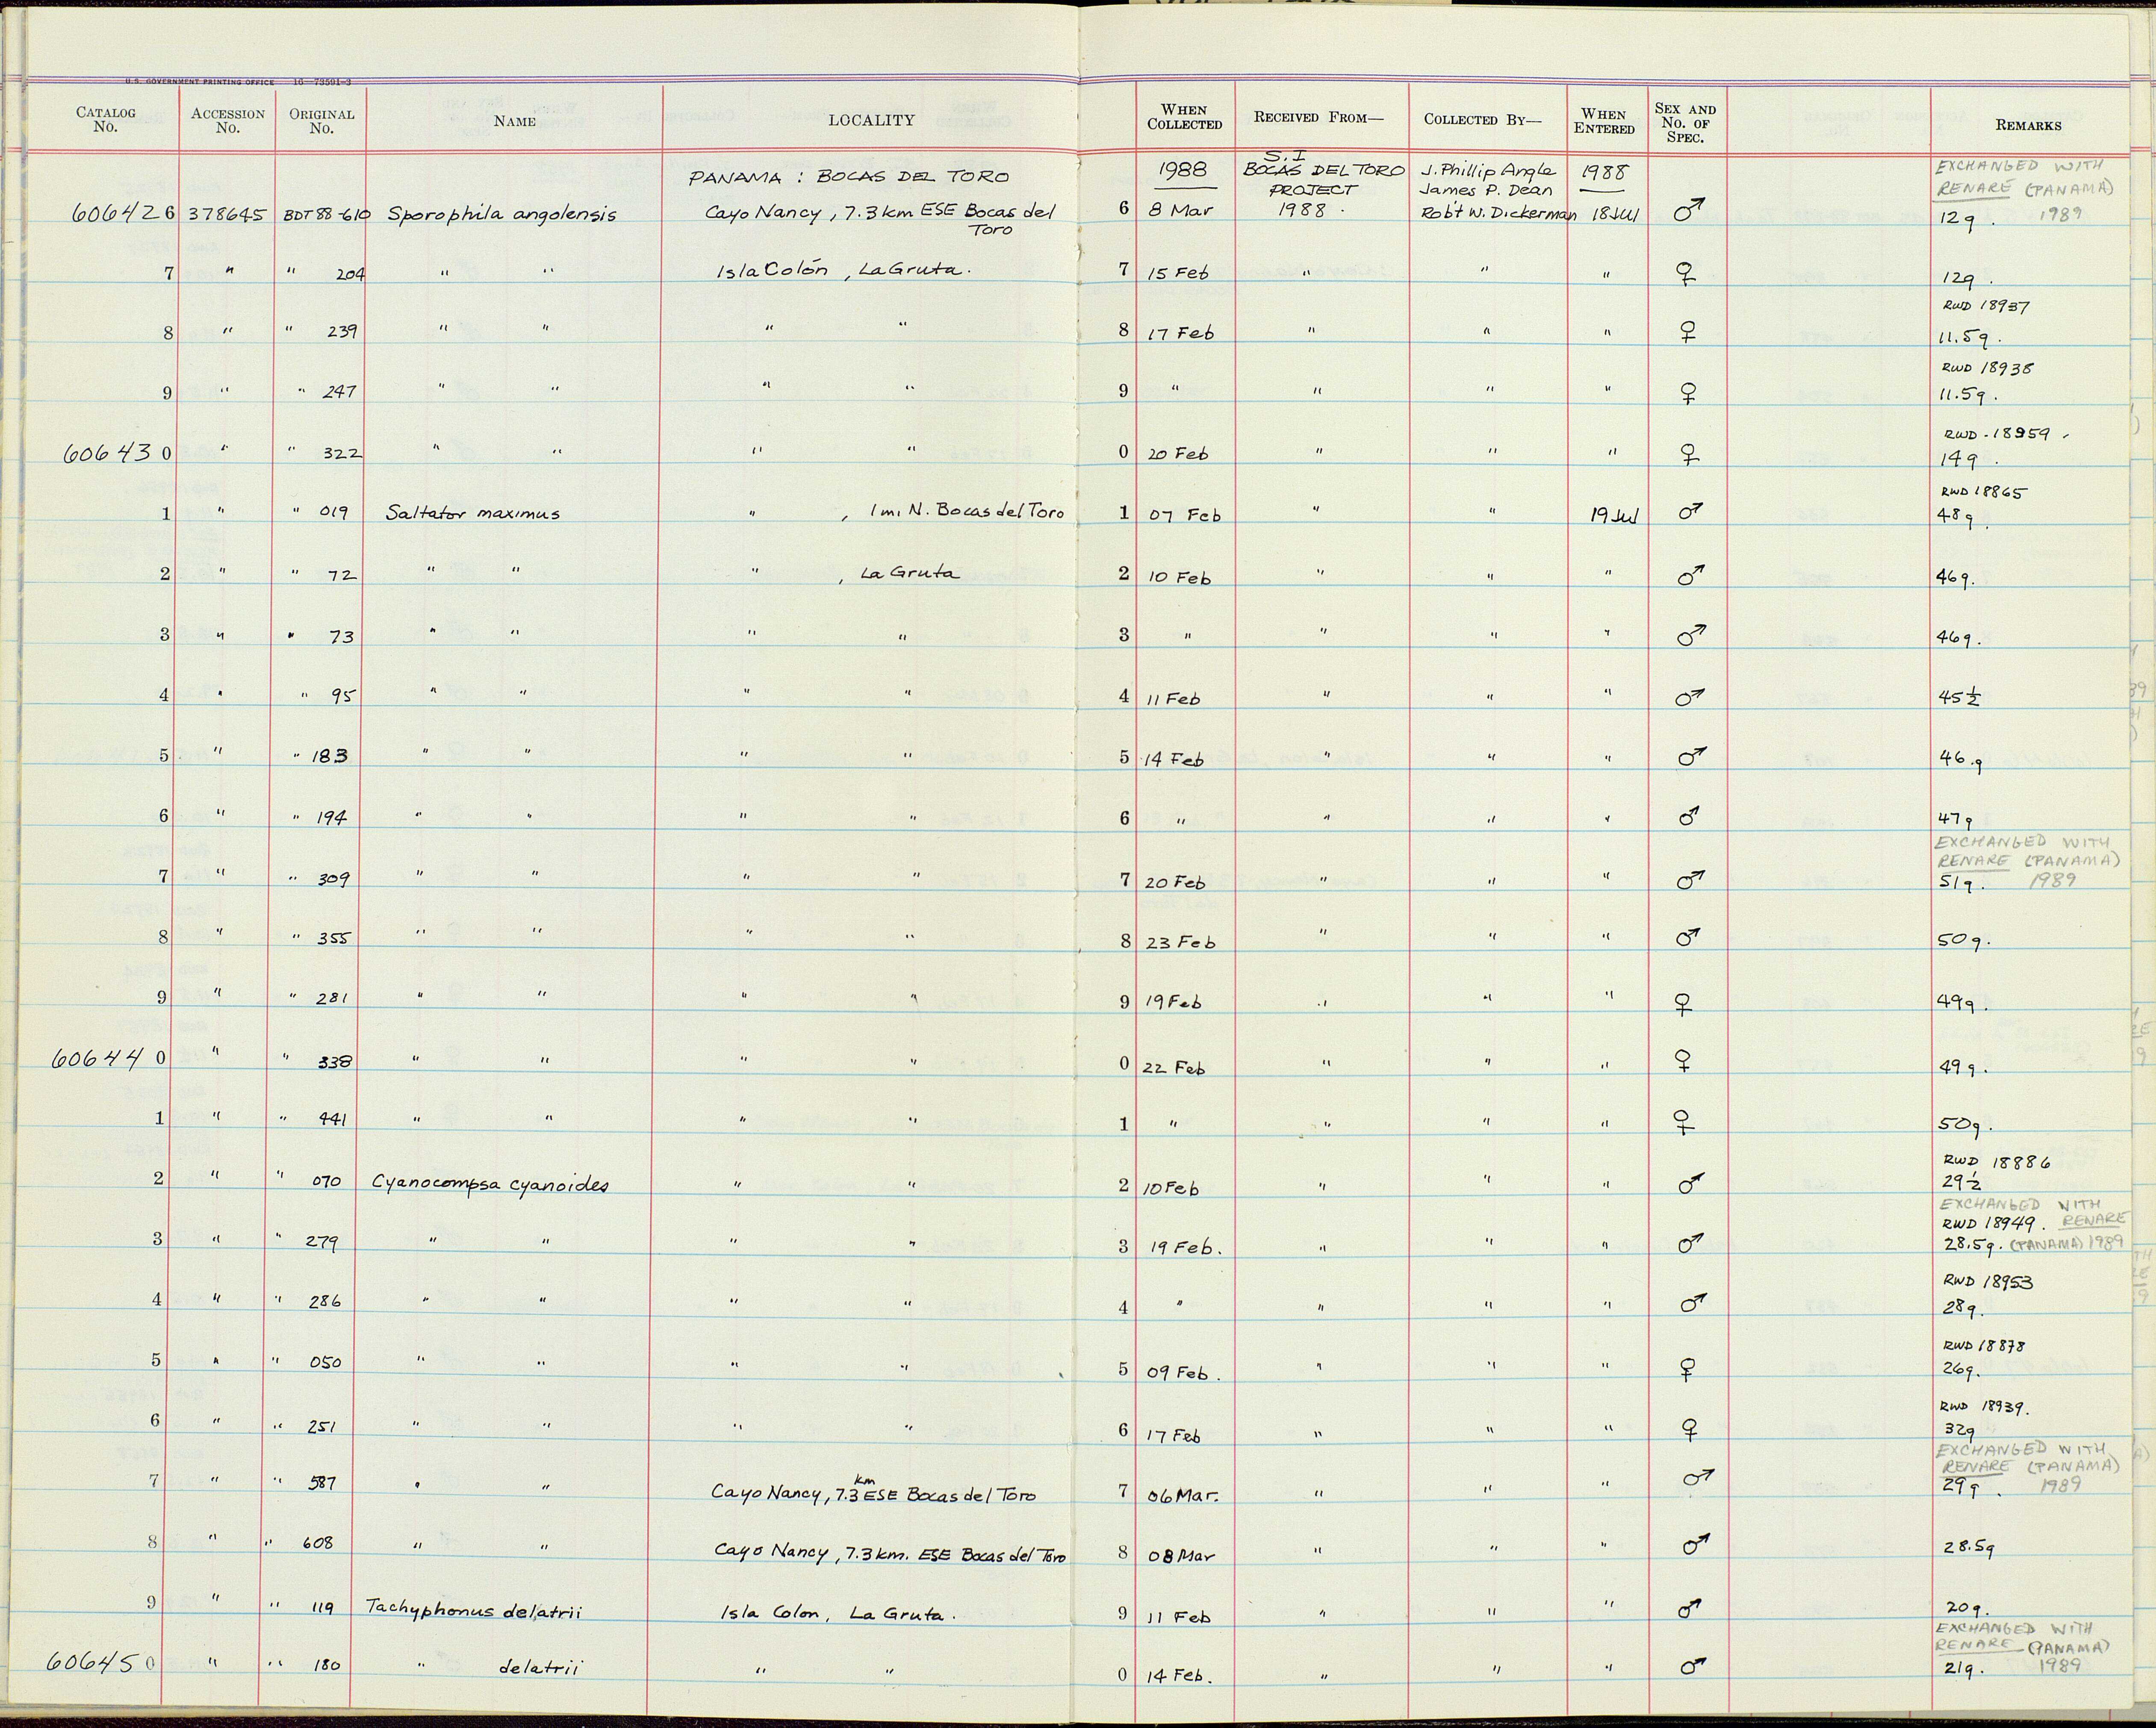 U.S. GOVERNMENT PRINTING OFFICE 16—73591-3
CATALOG No. ACCESSION No. ORIGINAL No. NAME LOCALITY WHEN COLLECTED RECEIVED FROM— COLLECTED BY— WHEN ENTERED SEX AND No. OF SPEC. REMARKS
PANAMA : BOCAS DEL TORO 1988 S.I BOCAS DEL TORO PROJECT 1988 . J. Phillip Angle James P. Dean 1988 EXCHANGED WITH RENARE (PANAMA) 1989
606426 378645 BDT 88-610 Sporophila angolensis Cayo Nancy, 7.3 km ESE Bocas del Toro 6 8 Mar Rob't W. Dickerman 18 Jul ♂ 12g.
7 " " 204 " " Isla Colón, La Gruta. 7 15 Feb " " " ♀ 12g.
8 " " 239 " " " " 8 17 Feb " " " ♀ RWD 18937 11.5g.
9 " " 247 " " " " 9 " " " " ♀ RWD 18938 11.5g.
606430 " " 322 " " " " 0 20 Feb " " " ♀ RWD-18959 14g.
1 " " 019 Saltator maximus " , 1mi N. Bocas del Toro 1 07 Feb " " 19 Jul ♂ RWD 18865 48g.
2 " " 72 " " " , La Gruta 2 10 Feb " " " ♂ 46g.
3 " " 73 " " " " 3 " " " " ♂ 46g.
4 " " 95 " " " " 4 11 Feb " " " ♂ 45½
5 " " 183 " " " " 5 14 Feb " " " ♂ 46.g
6 " " 194 " " " " 6 " " " " ♂ 47g
7 " " 309 " " " " 7 20 Feb " " " ♂ EXCHANGED WITH RENARE (PANAMA) 51g. 1989
8 " " 355 " " " " 8 23 Feb " " " ♂ 50g.
9 " " 281 " " " " 9 19 Feb " " " ♀ 49g.
606440 " " 338 " " " " 0 22 Feb " " " ♀ 49g.
1 " " 441 " " " " 1 " " " " ♀ 50g.
2 " " 070 Cyanocompsa cyanoides " " 2 10 Feb " " " ♂ RWD 18886 29½
3 " " 279 " " " " 3 19 Feb. " " " ♂ EXCHANGED WITH RWD 18949. RENARE 28.5g. (PANAMA) 1989
4 " " 286 " " " " 4 " " " " ♂ RWD 18953 28g.
5 " " 050 " " " " 5 09 Feb. " " " ♀ RWD 18878 26g.
6 " " 251 " " " " 6 17 Feb " " " ♀ RWD 18939. 32g
7 " " 587 " " Cayo Nancy, 7.3 km ESE Bocas del Toro 7 06 Mar. " " " ♂ EXCHANGED WITH RENARE (PANAMA) 29g. 1989
8 " " 608 " " Cayo Nancy, 7.3 km. ESE Bocas del Toro 8 08 Mar " " " ♂ 28.5g
9 " " 119 Tachyphonus delatrii Isla Colon, La Gruta. 9 11 Feb " " " ♂ 20g.
606450 " " 180 " delatrii " " 0 14 Feb. " " " ♂ EXCHANGED WITH RENARE (PANAMA) 21g. 1989